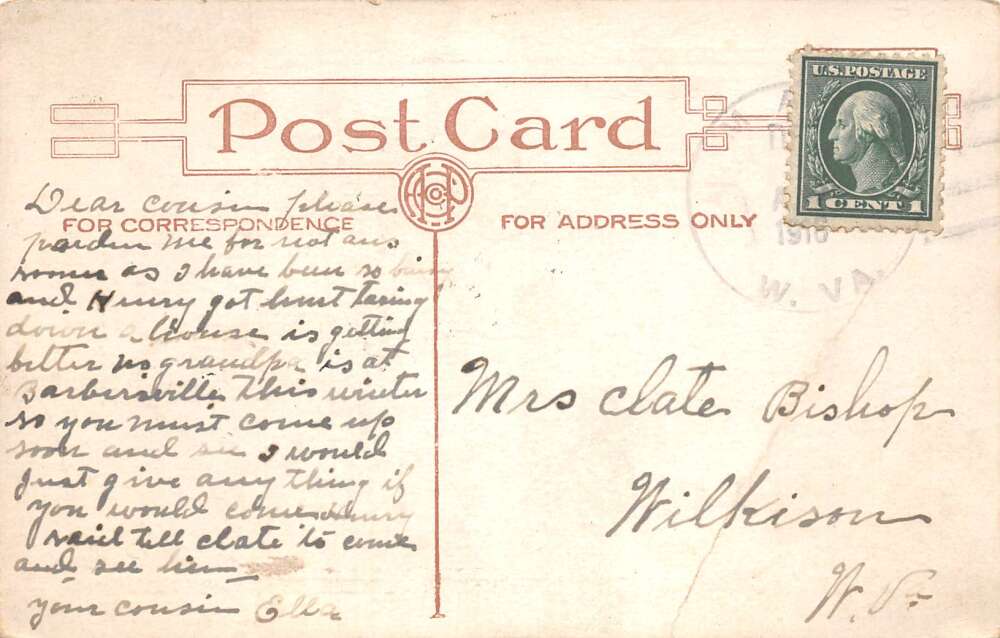 Post Card
U.S. POSTAGE
1 CENT 1
1916
W. VA.
FOR CORRESPONDENCE
FOR ADDRESS ONLY
Dear cousin please
pardon me for not ans
sooner as I have been so busy
and Henry got hurt taring
down a house is getting
better no grandpa is at
Barbersville this winter
so you must come up
soon and see I would
Just give any thing if
you would come Henry
said tell clate to come
and see him
your cousin Ella
Mrs Clate Bishop
Wilkison
W. Va